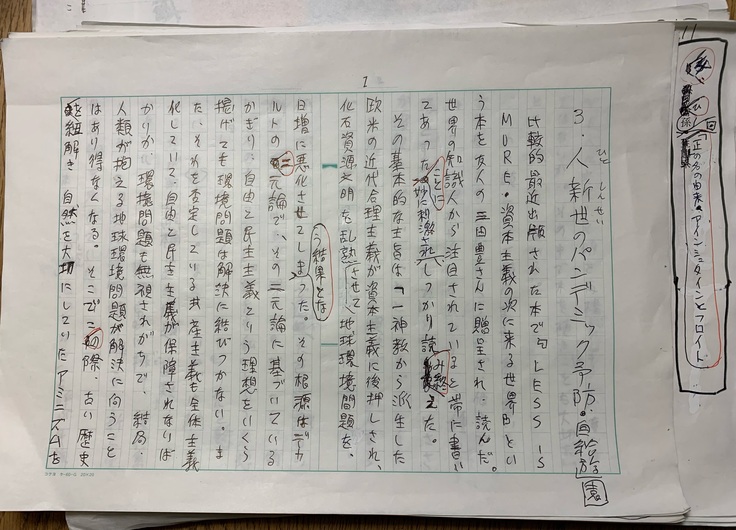 3.人新世のパンデミック予防・自給農園
ひと しん せい
比較的最近出願された本で『LESS IS
MORE・資本主義の次に来る世界』とい
う本を友人の三田豊さんに贈呈され、読んだ。
世界の知識人から注目されていると帯に書い
てあったことに妙に刺激されしっかり読み終えた。
その基本的な主旨は「一神教から派生した
欧米の近代合理主義が資本主義に後押しされ、
化石資源文明を乱熱させて、地球環境問題を、
日増に悪化させてしまう結果となった。その根源はデカ
ルトの二元論で、その二元論に基づいている
かぎり、自由と民主主義という理想をいくら
掲げても環境問題は解決に結びつかない。ま
た、それを否定している共産主義も全体主義
化していて、自由と民主主義が保障されないば
かりか、環境問題も無視されがちで、結局、
人類が抱える地球環境問題が解決に向うこと
はあり得なくなる。そこでこの際、古い歴史
を紐解き、自然を大切にしていたアミニズムを
1
正の名の由来・アインシュタインとフロイト
回